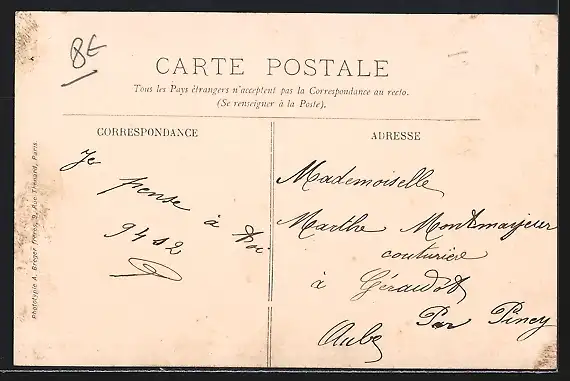 8E
CARTE POSTALE
Tous les Pays étrangers n'acceptent pas la Correspondance au recto.
(Se renseigner à la Poste).
CORRESPONDANCE
Je
pense
à toi
9412
ADRESSE
Mademoiselle
Marthe Montmayeur
couturière
à Géraudot
Par Piney
Aube
Phototypie A. Breger Frères, 9, Rue Thénard, Paris